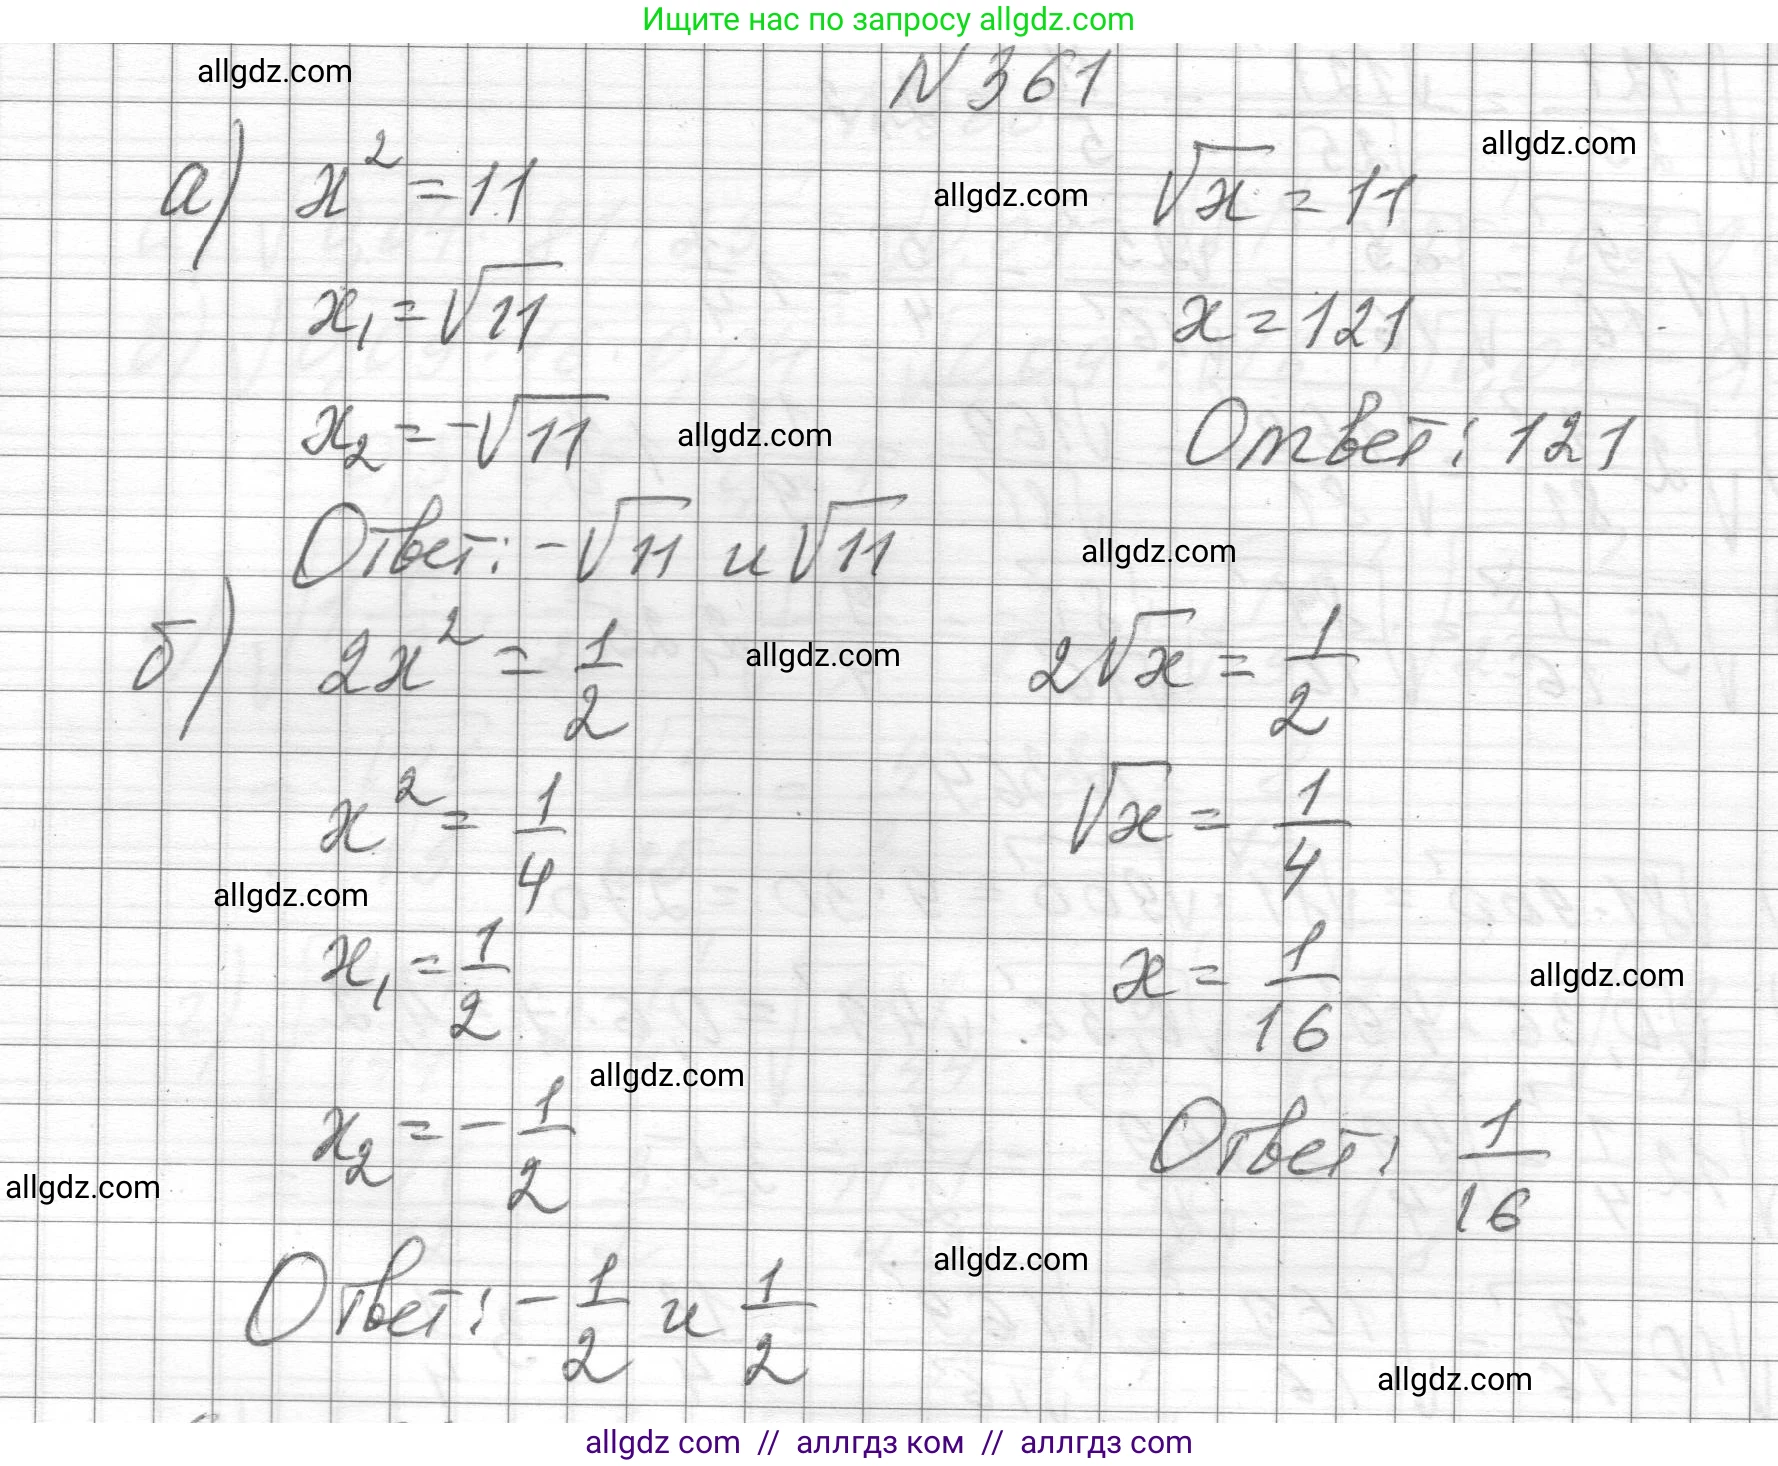 Ищите нас по запросу allgdz.com
allgdz.com
N 361
allgdz.com
а) x² = 11
allgdz.com
√x = 11
x₁ = √11
x = 121
x₂ = -√11
allgdz.com
Ответ: 121
Ответ: -√11 и √11
allgdz.com
б) 2x² = 1/2
allgdz.com
2√x = 1/2
x² = 1/4
√x = 1/4
allgdz.com
x₁ = 1/2
x = 1/16
allgdz.com
allgdz.com
x₂ = -1/2
Ответ: 1/16
allgdz.com
allgdz.com
Ответ: -1/2 и 1/2
allgdz.com
allgdz com // аллгдз ком // аллгдз com